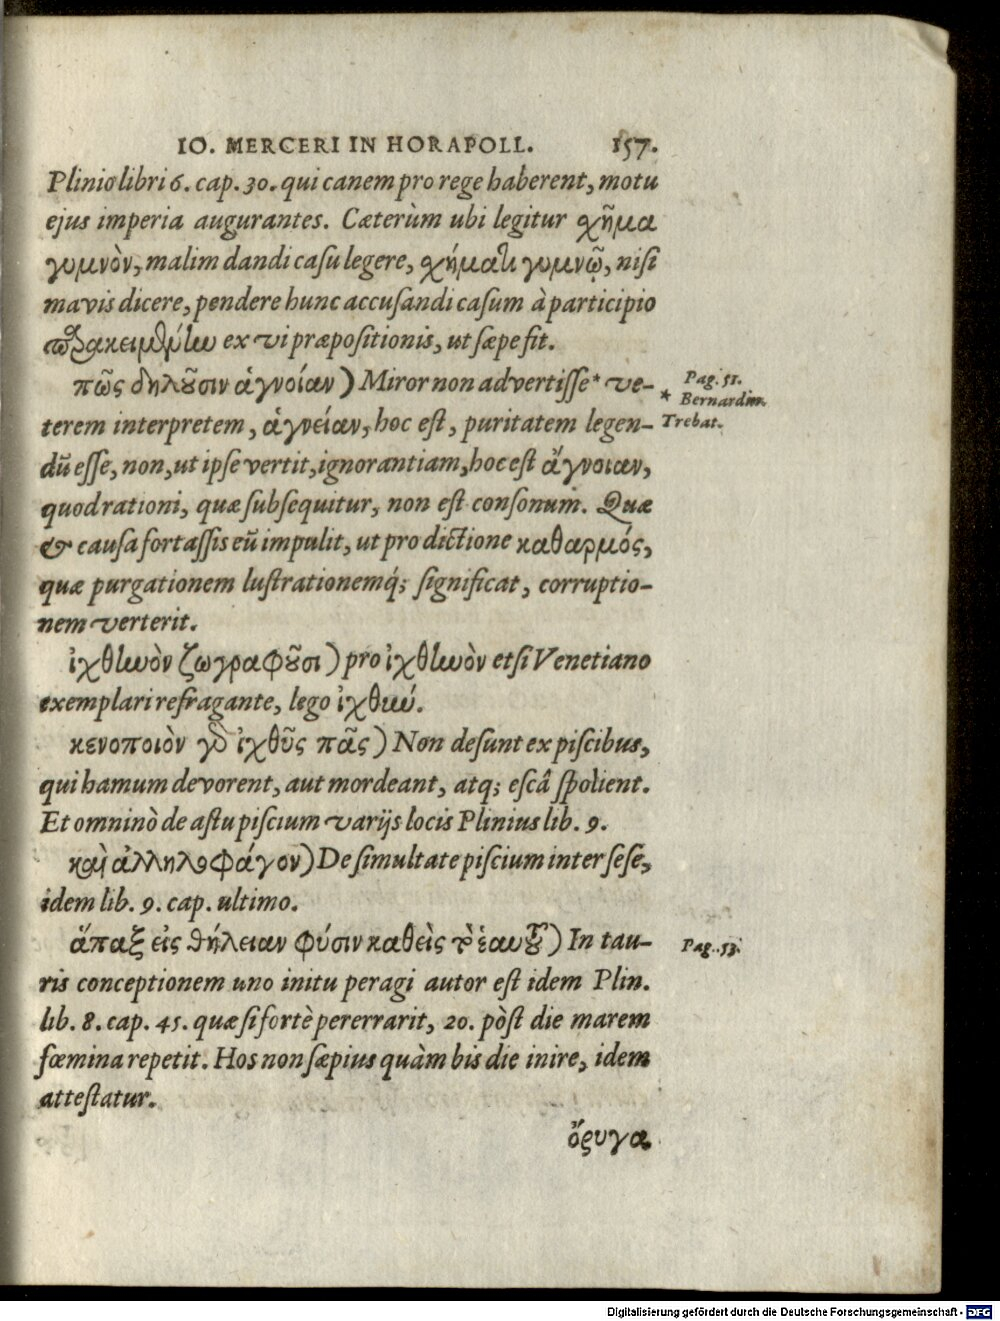 IO. MERCERI IN HORAPOLL. 157.
Plinio libri 6. cap. 30. qui canem pro rege haberent, motu
ejus imperia augurantes. Cæterùm ubi legitur σχῆμα
γυμνὸν, malim dandi casu legere, σχήματι γυμνῷ, nisi
mavis dicere, pendere hunc accusandi casum à participio
παρακειμένην ex vi præpositionis, ut sæpe fit.
πῶς δηλοῦσιν ἁγνοίαν) Miror non advertisse * ve-
Pag. 51.
* Bernardin.
Trebat.
terem interpretem, ἁγνείαν, hoc est, puritatem legen-
dũ esse, non, ut ipse vertit, ignorantiam, hoc est ἄγνοιαν,
quod rationi, quæ subsequitur, non est consonum. Quæ
& causa fortassis eũ impulit, ut pro dictione καθαρμός,
quæ purgationem lustrationemq́; significat, corruptio-
nem verterit.
ἰχθυνὸν ζωγραφοῦσι) pro ἰχθυνὸν etsi Venetiano
exemplari refragante, lego ἰχθύν.
κενοποιὸν γὸ ἰχθῦς πᾶς) Non desunt ex piscibus,
qui hamum devorent, aut mordeant, atq; escâ spolient.
Et omninò de astu piscium varijs locis Plinius lib. 9.
καὶ ἀλληλοφάγον) De simultate piscium inter sese,
idem lib. 9. cap. ultimo.
ἅπαξ εἰς θήλειαν φύσιν καθεὶς τὸ ἑαυτοῦ) In tau-
Pag. 53.
ris conceptionem uno initu peragi autor est idem Plin.
lib. 8. cap. 45. quæ si fortè pererrarit, 20. pòst die marem
fœmina repetit. Hos non sæpius quàm bis die inire, idem
attestatur.
ὄρυγα
Digitalisierung gefördert durch die Deutsche Forschungsgemeinschaft - DFG